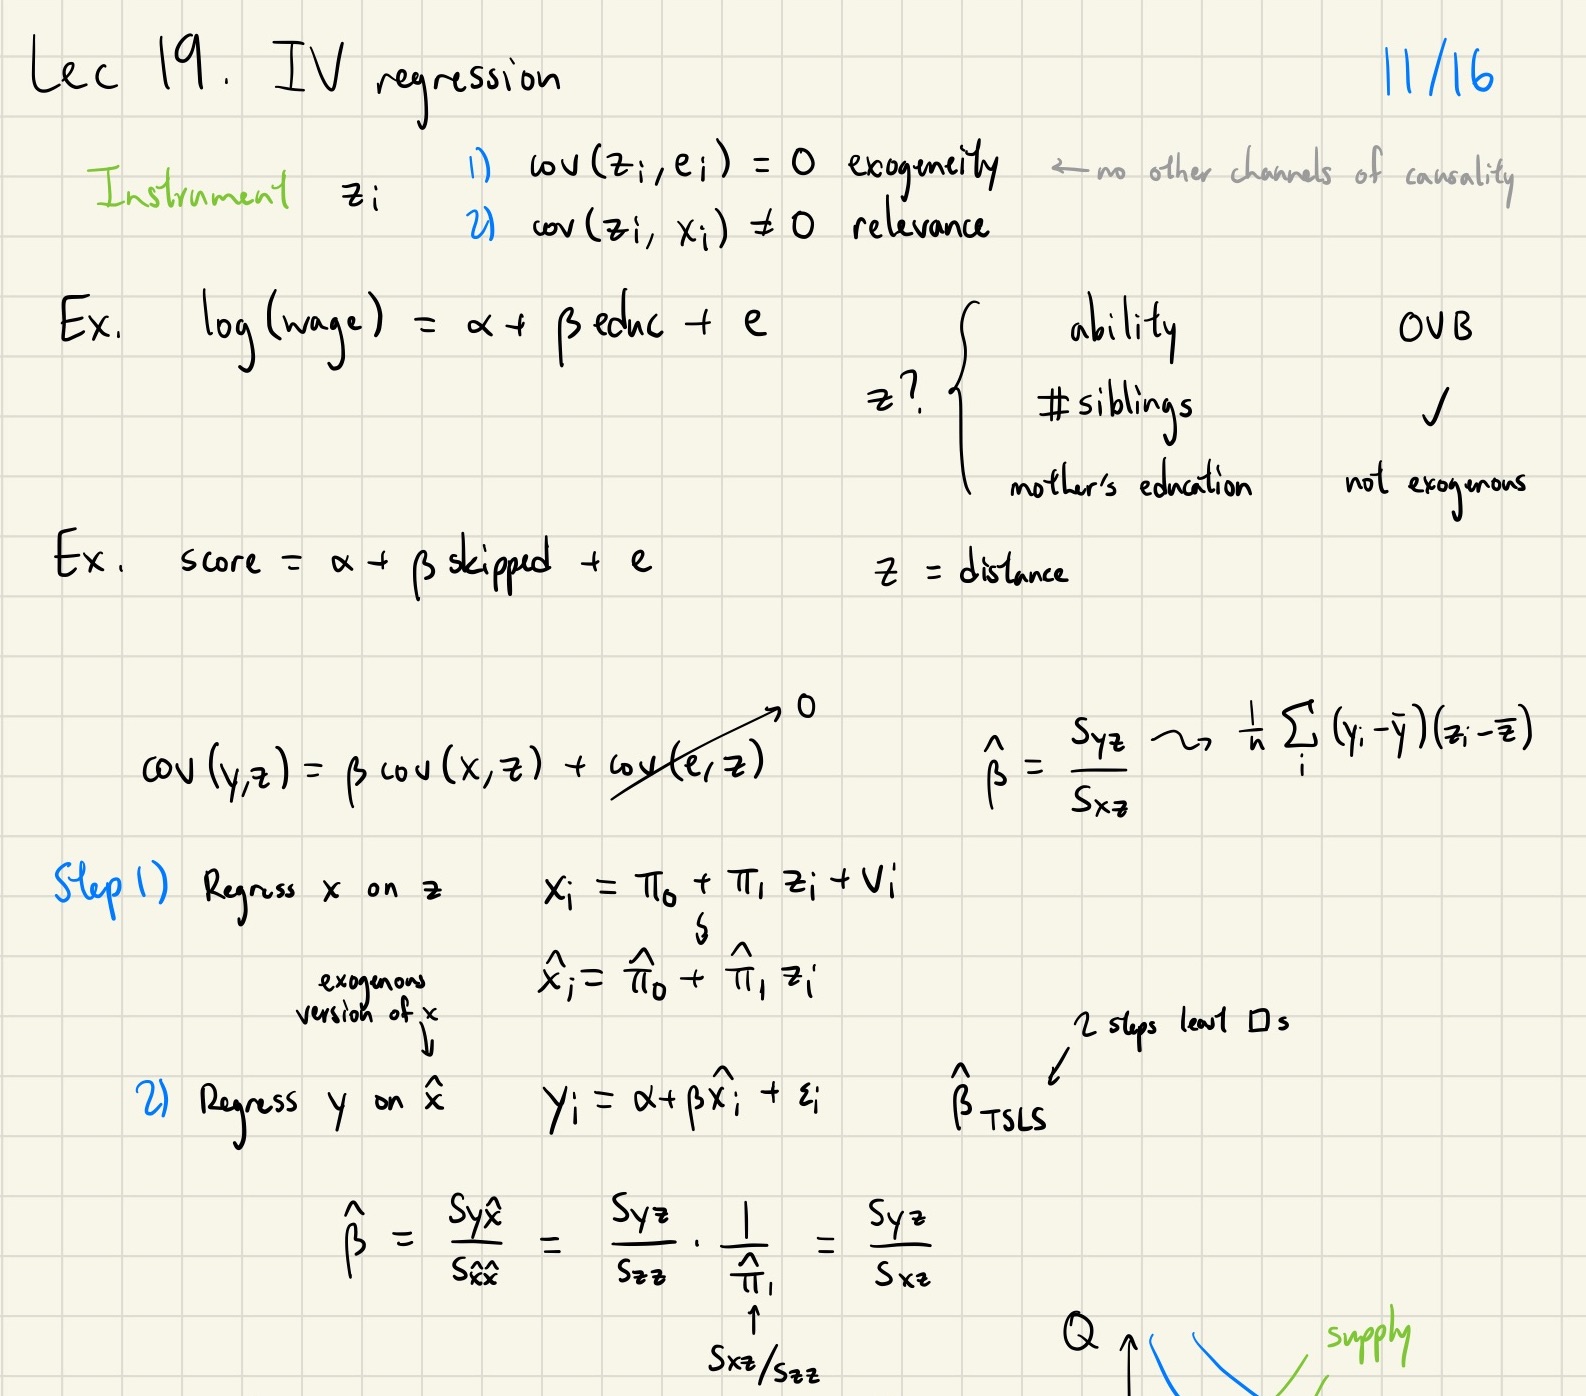 Lec 19. IV regression 11/16
Instrument zᵢ 1) cov(zᵢ, eᵢ) = 0 exogeneity ← no other channels of causality
2) cov(zᵢ, xᵢ) ≠ 0 relevance
Ex. log(wage) = α + β educ + e
z? { ability OVB
#siblings ✓
mother's education not exogenous
Ex. score = α + β skipped + e z = distance
cov(y,z) = β cov(x,z) + cov(e,z) → 0
β̂ = Syz / Sxz ⇝ 1/n Σᵢ (yᵢ - ȳ)(zᵢ - z̄)
Step 1) Regress x on z xᵢ = π₀ + π₁ zᵢ + vᵢ
x̂ᵢ = π̂₀ + π̂₁ zᵢ
exogenous
version of x
2 steps least □s
2) Regress y on x̂ yᵢ = α + βx̂ᵢ + εᵢ β̂ TSLS
β̂ = Syx̂ / Sx̂x̂ = Syz / Szz · 1 / π̂₁ = Syz / Sxz
↑
Sxz/Szz
Q ↑ supply